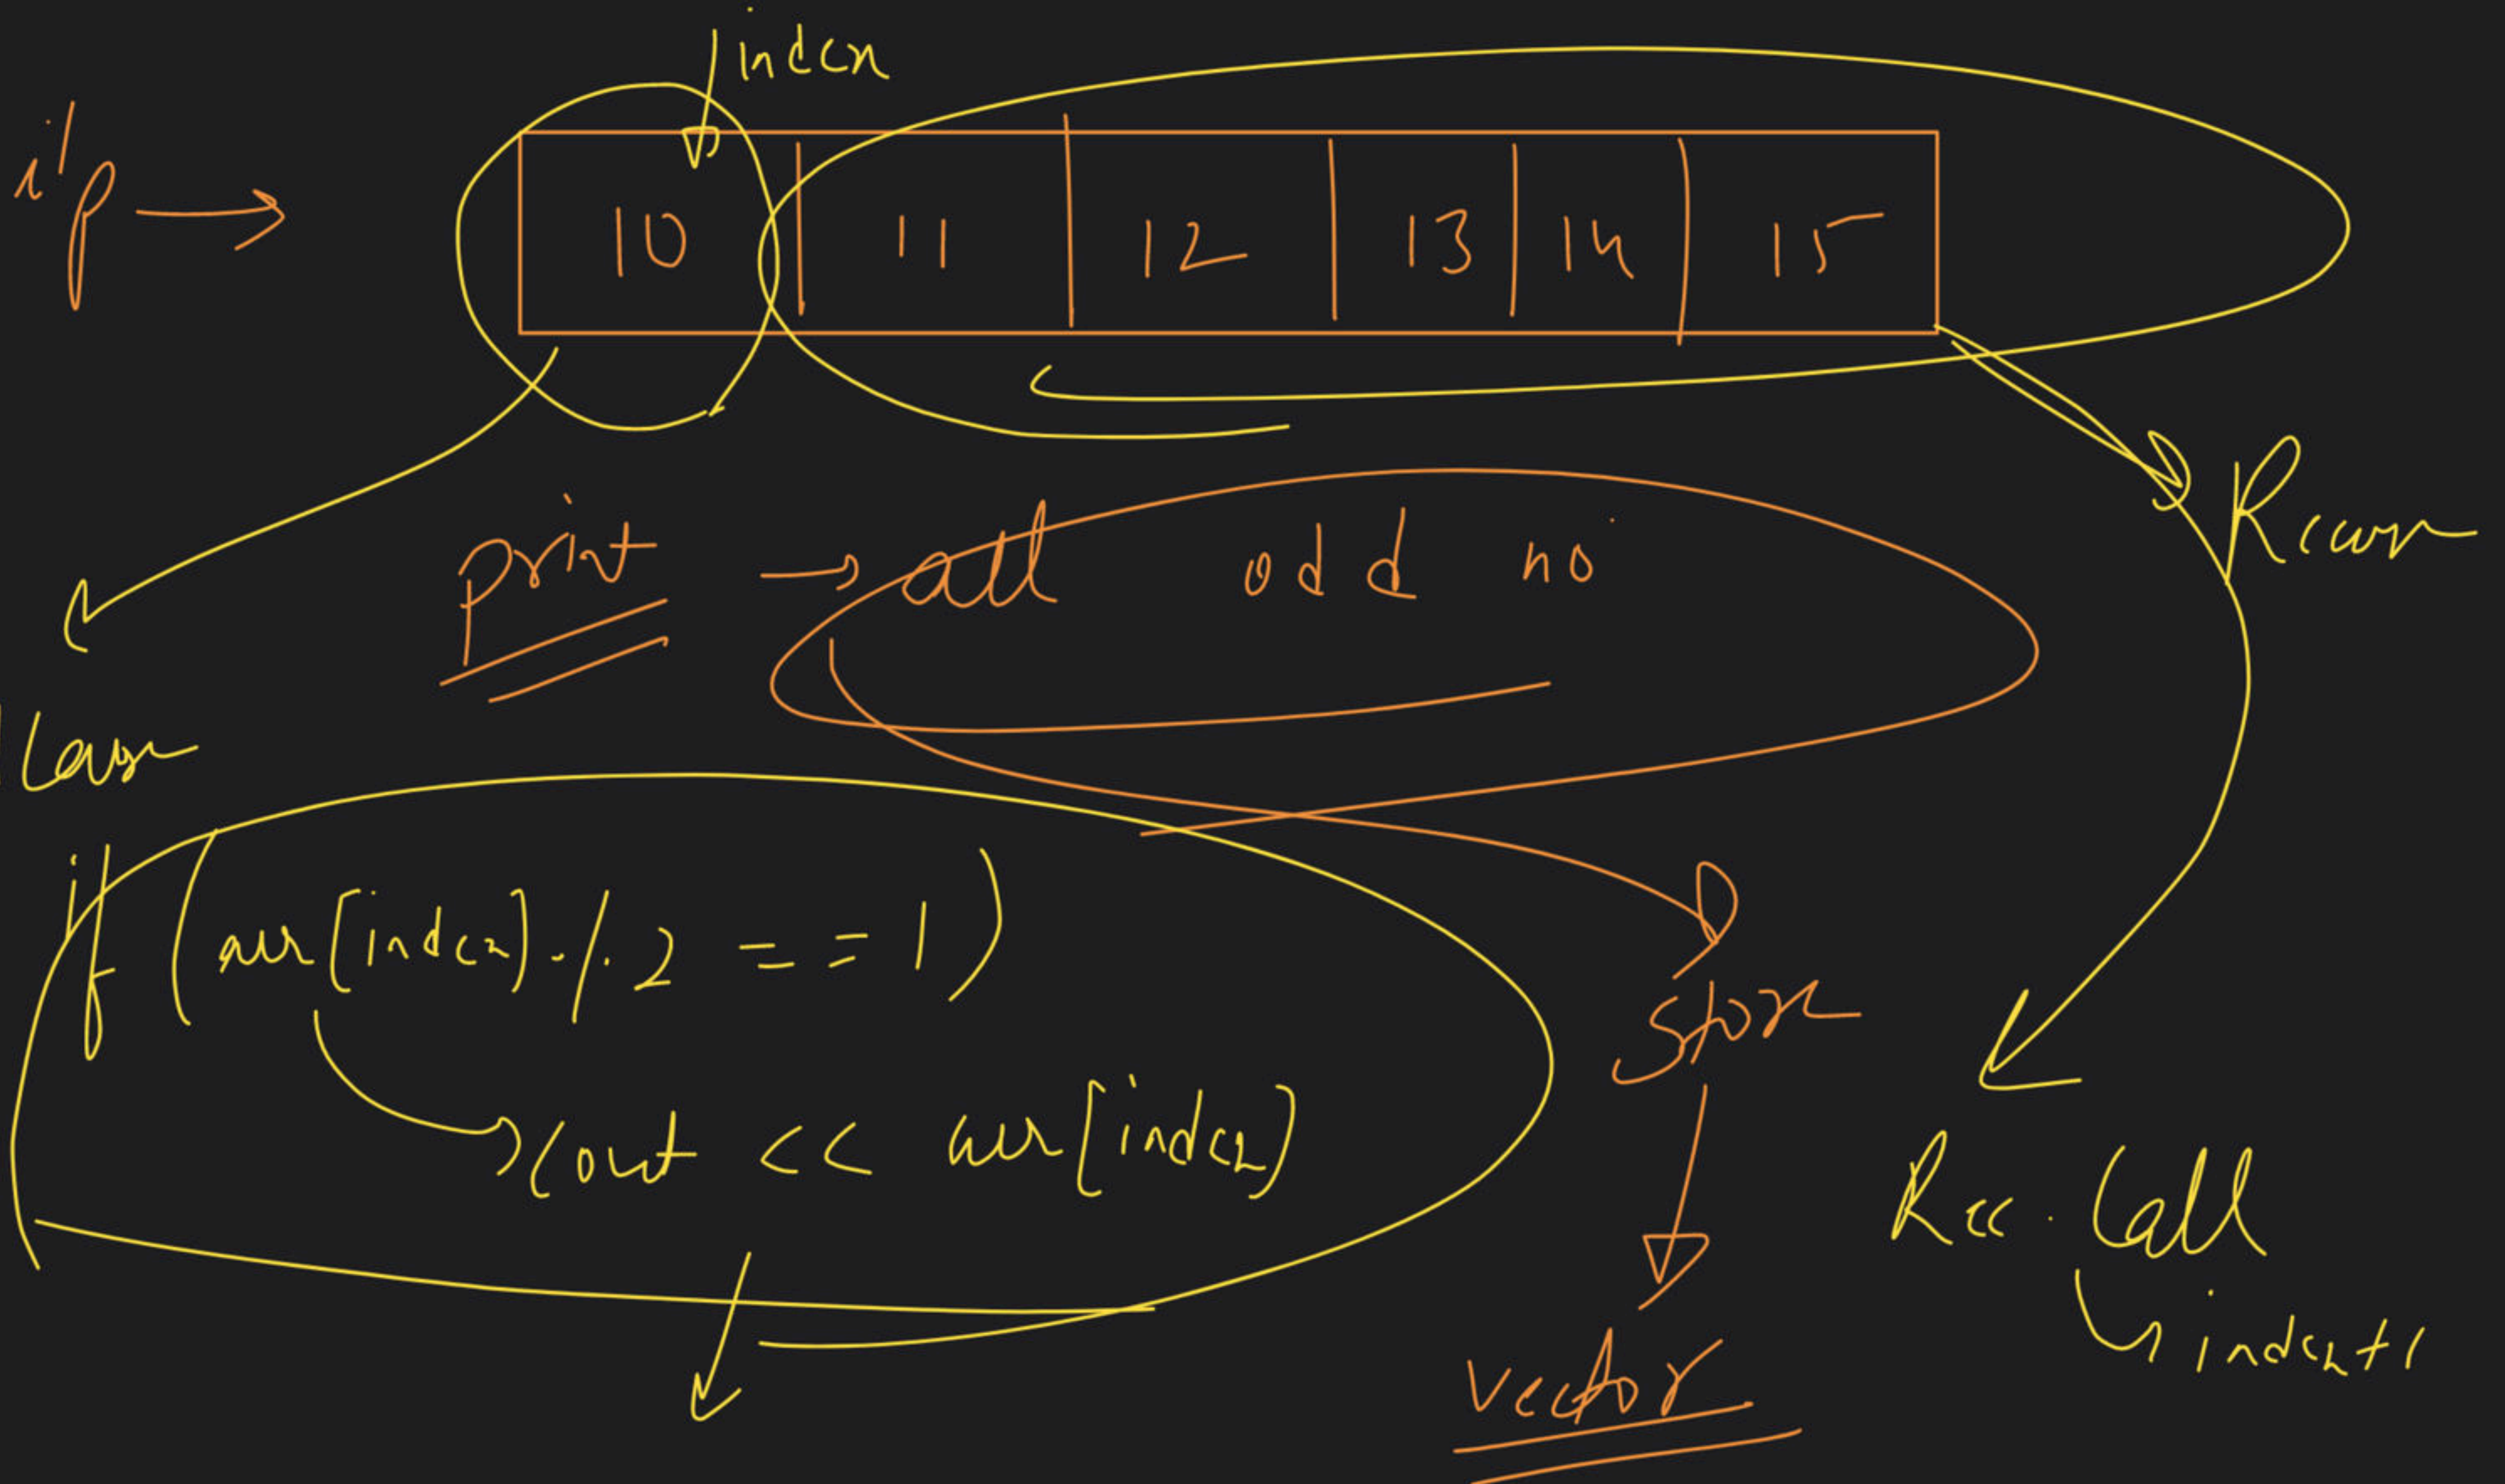 index
i/p → 10 11 12 13 14 15
Recursion
print → all odd no
1 Case
if (arr[index] % 2 == 1)
cout << arr[index]
store
vector
Rec. Call
index+1